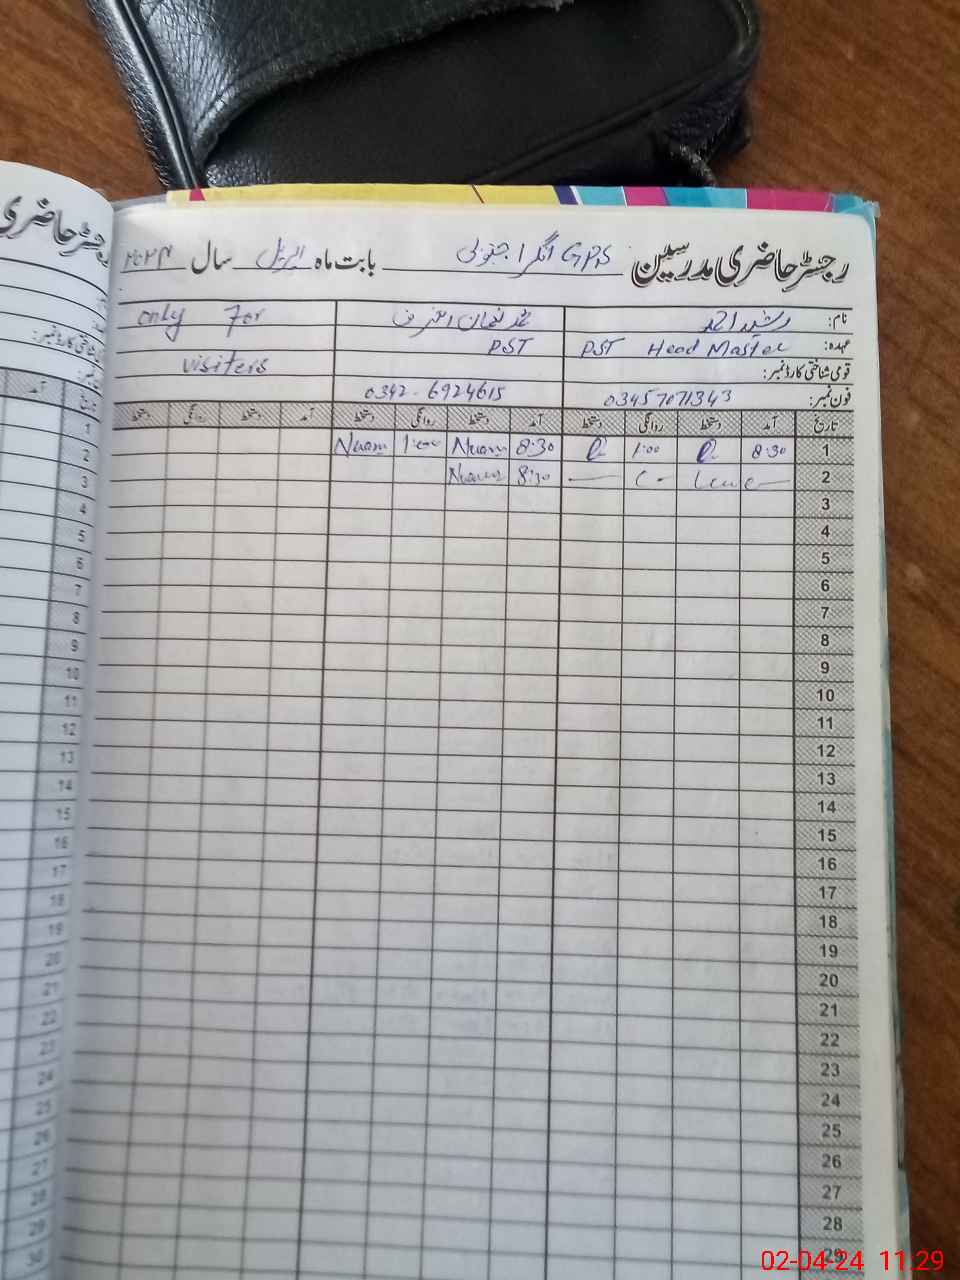 رجسٹر حاضری مدرسین GPS انگرا جنوبی بابت ماہ اپریل سال ۲۰۲۴
نام: رشید احمد
only For
عہدہ: PST Head Master PST
visiters
قومی شناختی کارڈ نمبر:
فون نمبر: 03457071343 0342-6924615
تاریخ آمد دستخط روانگی دستخط آمد دستخط روانگی دستخط آمد دستخط روانگی دستخط
1 8:30 1:00 8:30 Naam 1:00 Naam
2 Leave 8:30 Naam
3
4
5
6
7
8
9
10
11
12
13
14
15
16
17
18
19
20
21
22
23
24
25
26
27
28
29
رجسٹر حاضری
تاریخ آمد
1
2
3
4
5
6
7
8
9
10
11
12
13
14
15
16
17
18
19
20
21
22
23
24
25
26
27
28
29
30
02-04-24 11.29